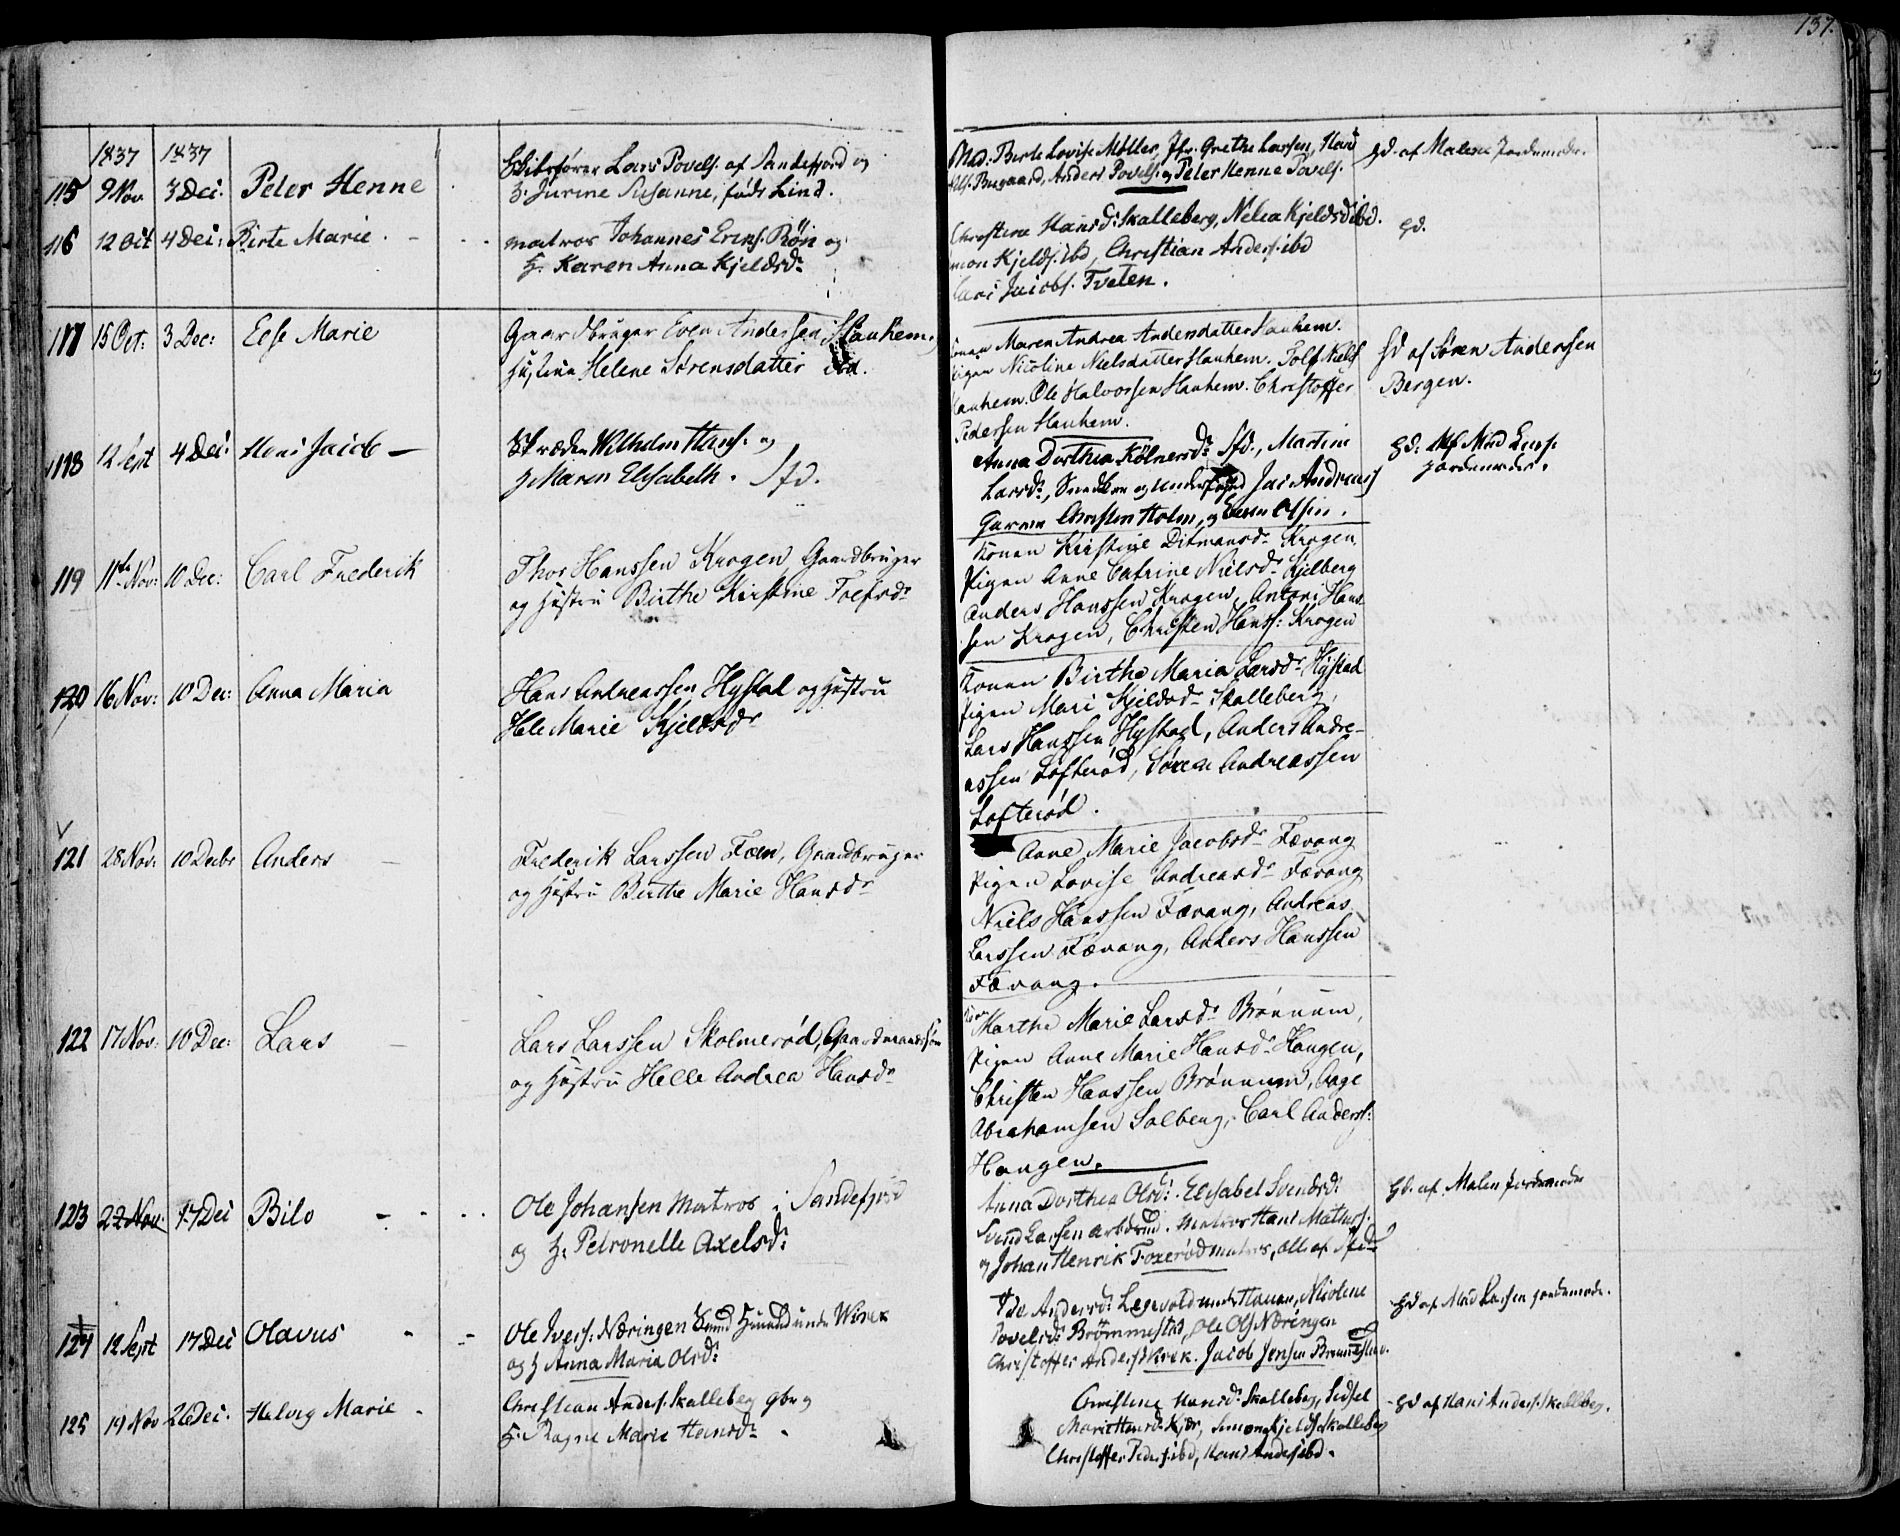 137.
1837 1837
115 9 Nov 3 Dec: Peter Henne
Skibsfører Lars Povels. af Sandefjord og
H. Jurine Susanne, født Lind.
Mad: Berte Lovise Møller, Jfr. Grethe Larsen, Hans
Bugaard, Anders Povels. og Peter Henne Povels.
gd. af Malene Jordemoder.
116 12 Oct 4 Dec: Birte Marie
matros Johannes Erics. Røn og
H. Karen Anna Kjeldsdr
Christine Hansd: Skalleberg, Kjeldsd ibd.
Kjelds. ibd, Christian Anders. ibd
Jacobs. Tveten.
gd.
117 15 Oct: 3 Dec: Else Marie
Gaardbruger Even Andersen Hauhem,
Hustru Helene Sørensdatter ibd.
Konen Maren Andrea Andersdatter Hauhem.
Pigen Nicoline Nielsdatter Hauhem. Tolf Niels
Hauhem. Ole Halvorsen Hauhem. Christoffer
Pedersen Hauhem.
gd af Søren Anderssen
Bergen.
118 12 Sept 4 Dec: Hans Jacob
Skræder Wilhelm Hans. og
H Maren Elisabeth. Sfd.
Anna Dorthea Sfd., Martine
Larsd:, og Andreas
Garver Christen Holm, og Olsen.
gd: af Mad
Jordemoder.
119 11te Nov: 10 Dec: Carl Frederik
Thor Hanssen Krogen, Gaardbruger
og Hustru Birthe Kirstine Toefsdr
Konen Kirstine Ditmansdr Krogen
Pigen Anne Catrine Nielsdr Kjelberg
Anders Hanssen Krogen, Anton Hans
sen Krogen, Christen Hanss: Krogen
120 16 Nov: 10 Dec: Anna Maria
Hans Andreassen Hystad og Hustru
Hele Marie Kjeldsdr
Konen Birthe Maria Larsdr Hystad
Pigen Mari Kjeldsdr Skalleberg,
Lars Hanssen Hystad, Anders Andre-
assen Lofterød, Søren Andreassen
Lofterød.
121 28 Nov: 10 Decbr Anders
Frederik Larssen Foen, Gaardbruger
og Hustru Birthe Marie Hansdr
Anne Marie Jacobsdr Fævang
Pigen Lovise Andreasdr Fævang
Niels Hanssen Fævang, Andreas
Larssen Fævang, Anders Hanssen
Fævang.
122 17 Nov: 10 Dec: Lars
Lars Larssen Skolmerød, Gaardmandssøn
og Hustru Helle Andrea Hansdr
Kone Marthe Marie Larsdr Brønnum,
Pigen Anne Marie Hansdr Haugen,
Christen Hanssen Brønnum, Aage
Abrahamsen Solberg, Carl Anderss:
Haugen.
123 22 Nov. 17 Dec Bilo
Ole Johansen Matros i Sandefjord
og H. Petronelle Axelsd:
Anna Dorthea Olsd:. Elisabet Svendsd:
Svend Larsen arbdmd. Matros Hans Mathiss.
og Johan Henrik Foxerød matros, alle af Sfd:
gd. af. Malen Jordemoder
124 12 Sept 17 Dec Olavus
Ole Ivers. Næringen Huusmd under Wirek
og H Anna Maria Olsd:
Ide Andersd: Hauan, Nicoline
Povelsd: Brømmestad, Ole Ols Næringen
Christoffer Anders Virek. Jacob Jensen
gd af Mad Larsen jordemoder.
125 19 Nov 26 Dec. Helvig Marie
Christian Anders. Skalleberg gbr og
H. Ragne Marie Hansd:
Christine Hansd: Skalleberg, Sidsel
Marie Hansd: Kjær, Simon Kjelds Skalleberg
Christoffer Peders. ibd, Hans Anders ibd.
gd af Hans Anders. Skalleberg.